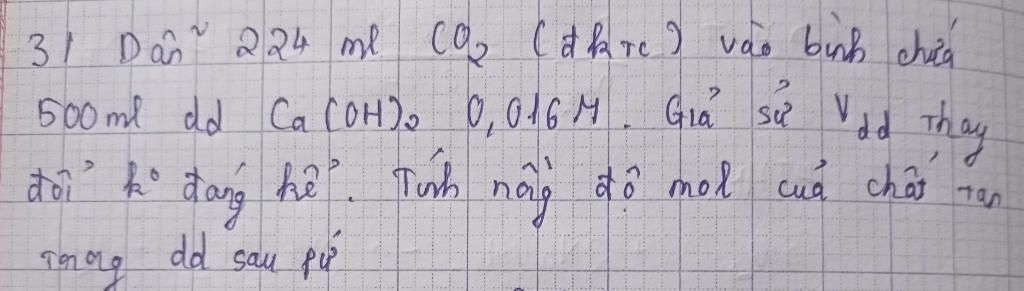 3/ Dẫn 224 ml CO₂ (đktc) vào bình chứa
500ml dd Ca(OH)₂ 0,016M. Giả sử Vdd thay
đổi ko đáng kể. Tính nồng độ mol của chất tan
trong dd sau pứ